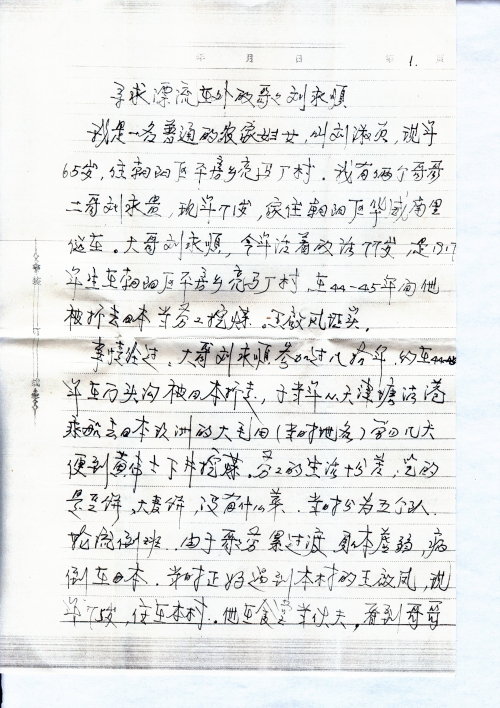 年 月 日 第 1. 页
寻求漂流在外的哥哥刘永顺
我是一名普通的农家妇女,叫刘淑贞,现年
65岁,住朝阳区平房乡亮马厂村。我有俩个哥哥
二哥刘永贵,现年71岁,家住朝阳区华威南里
健在。大哥刘永顺,今年活着的话77岁,是1917
年生在朝阳区平房乡亮马厂村,在44-45年间他
被抓去日本当劳工挖煤。王啟凤证实。
事情经过:大哥刘永顺参加过八路军,约在44-45
年在门头沟被日本抓走,于当年从天津塘沽港
乘船去日本九洲的大毛田(当时地名)第四几天
便到黄伟土下井挖煤。劳工的生活十分差,吃的
是豆饼、大麦饼,没有什么菜。当时分为五个队
轮流倒班。由于疲劳累过渡,身体虚弱,病
倒在日本。当时正好遇到本村的王啟凤,现
年75岁,住在本村。他在食堂当伙夫,看到哥哥